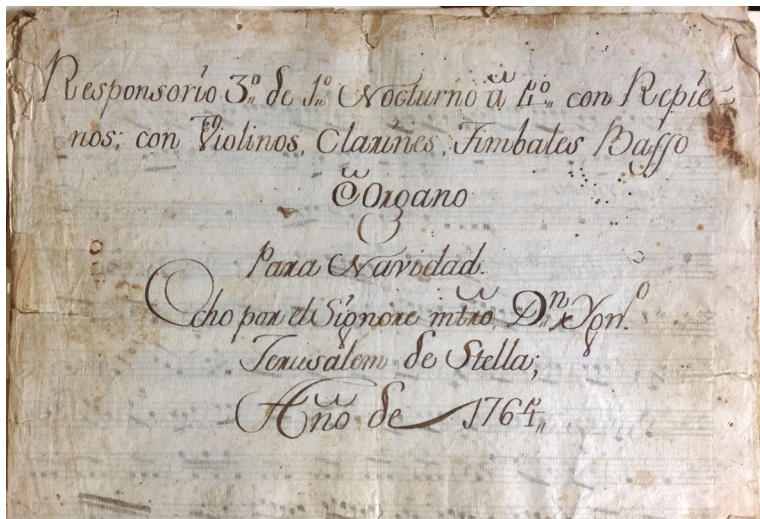 Responsorio 3º de 1º Nocturno â 4º, con Repie=
nos; con Violinos, Clarines, Timbales Basso
Organo
Para Navidad.
Echo por el Signore mtrõ, Dn.
Jerusalem de Stella;
Año de 1764,,